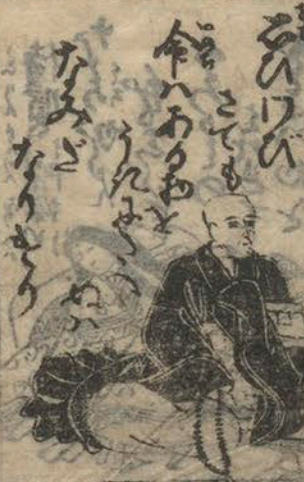 思ひわび
さても
命ハある物を
うきにたへ
ぬハ
なみだ
なりけり